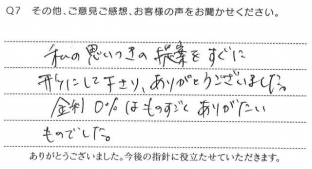 Q7 その他、ご意見ご感想、お客様の声をお聞かせください。
私の思いつきの提案をすぐに
形にして下さり、ありがとうございました。
金利0%はものすごくありがたい
ものでした。
ありがとうございました。今後の指針に役立たせていただきます。